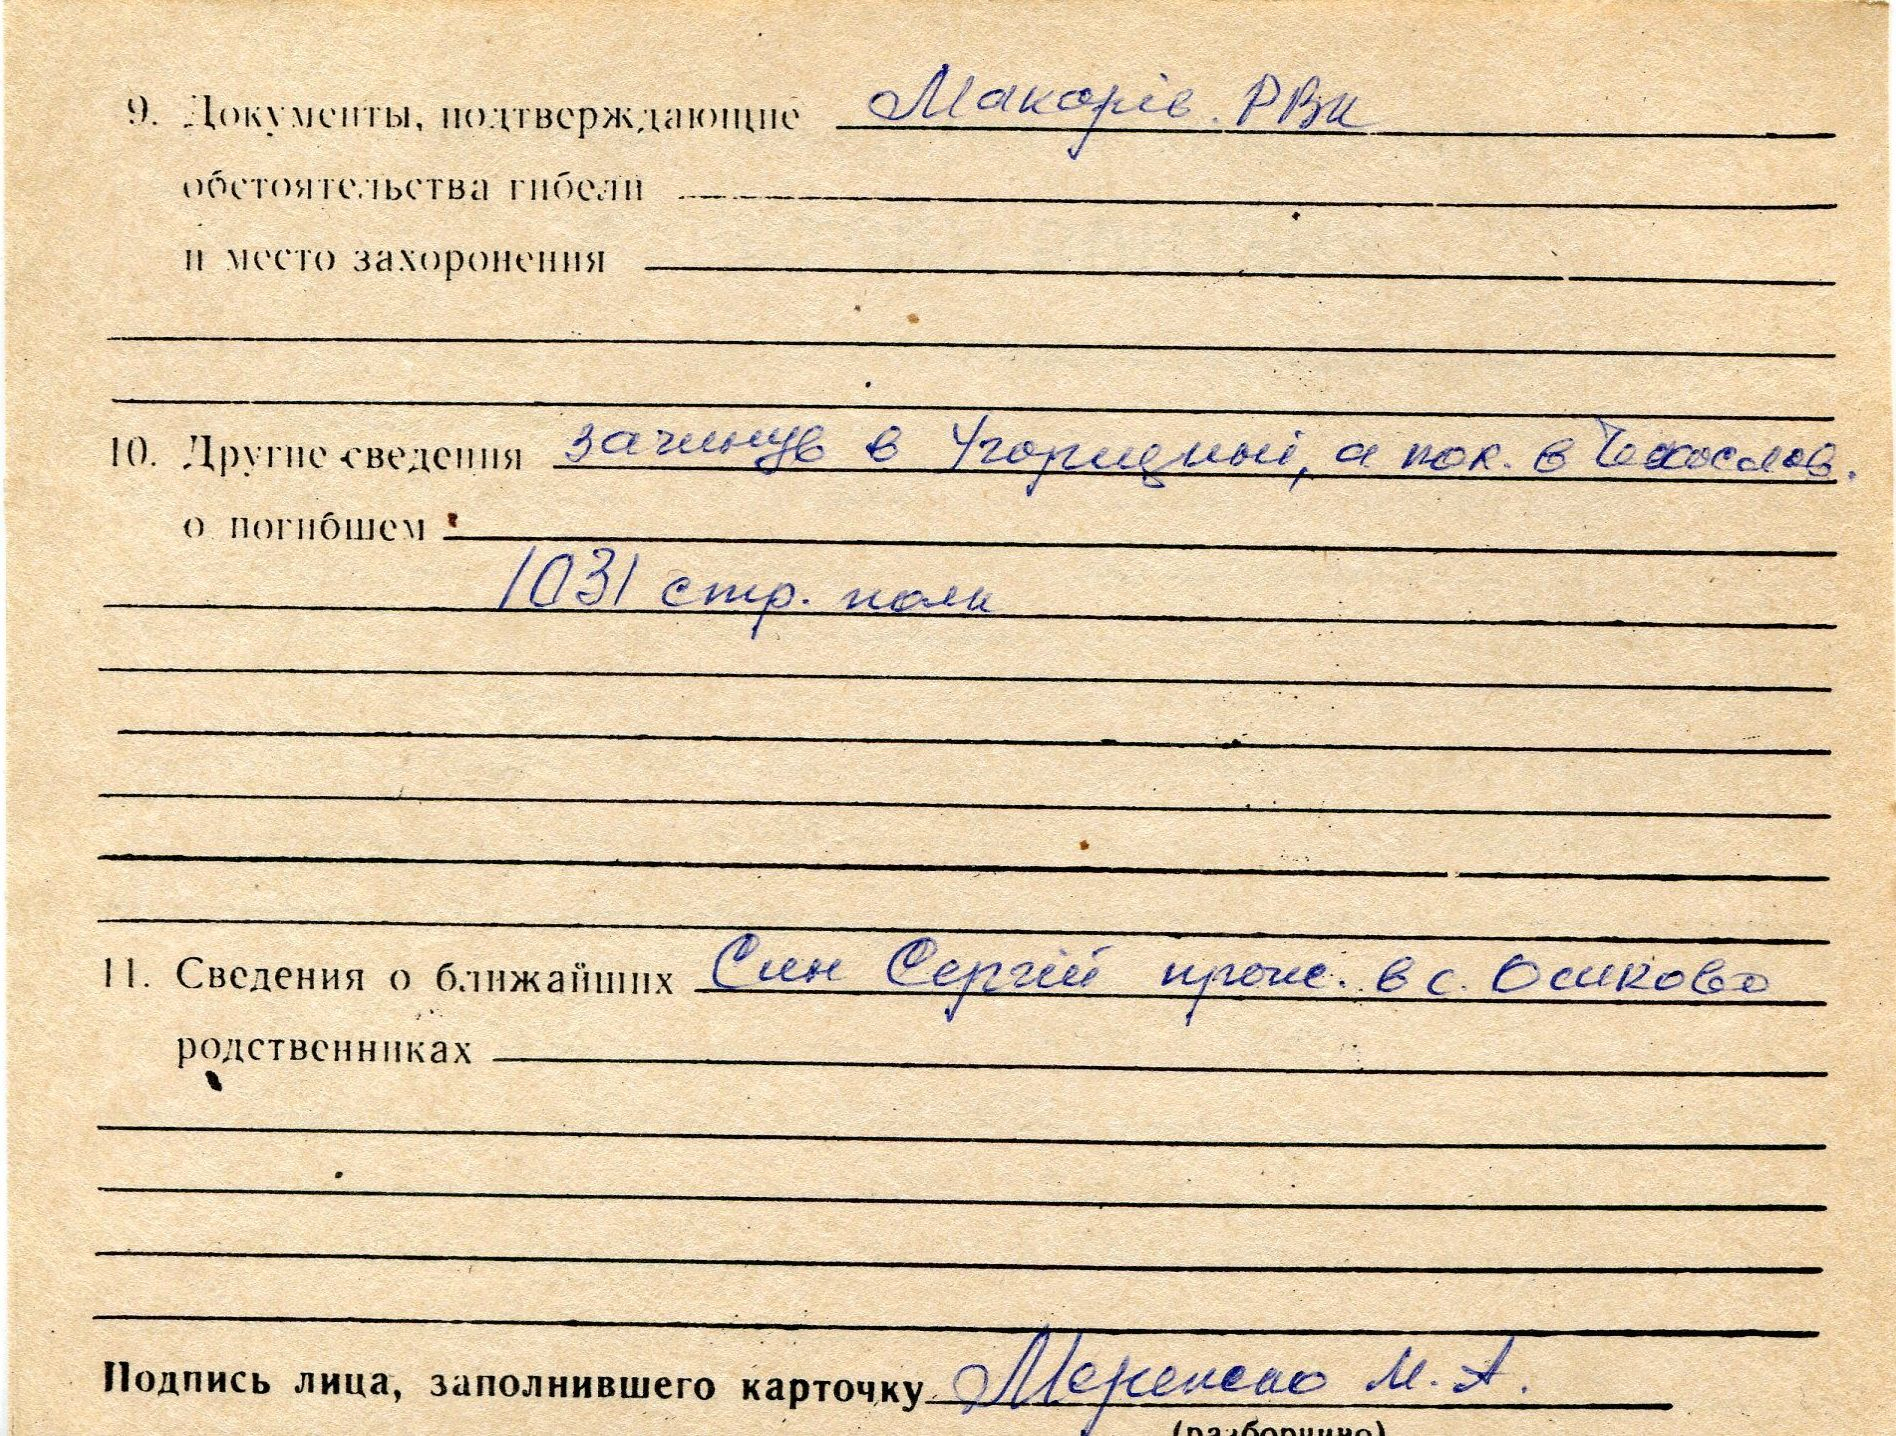 9. Документы, подтверждающие Макарів. РВК
обстоятельства гибели
и место захоронения
10. Другие сведения загинув в Угорщині, а пох. в Чехослов.
о погибшем
1031 стр. полк
11. Сведения о ближайших Син Сергій прож. в с. Осиково
родственниках
Подпись лица, заполнившего карточку М. А.
(разборчиво)